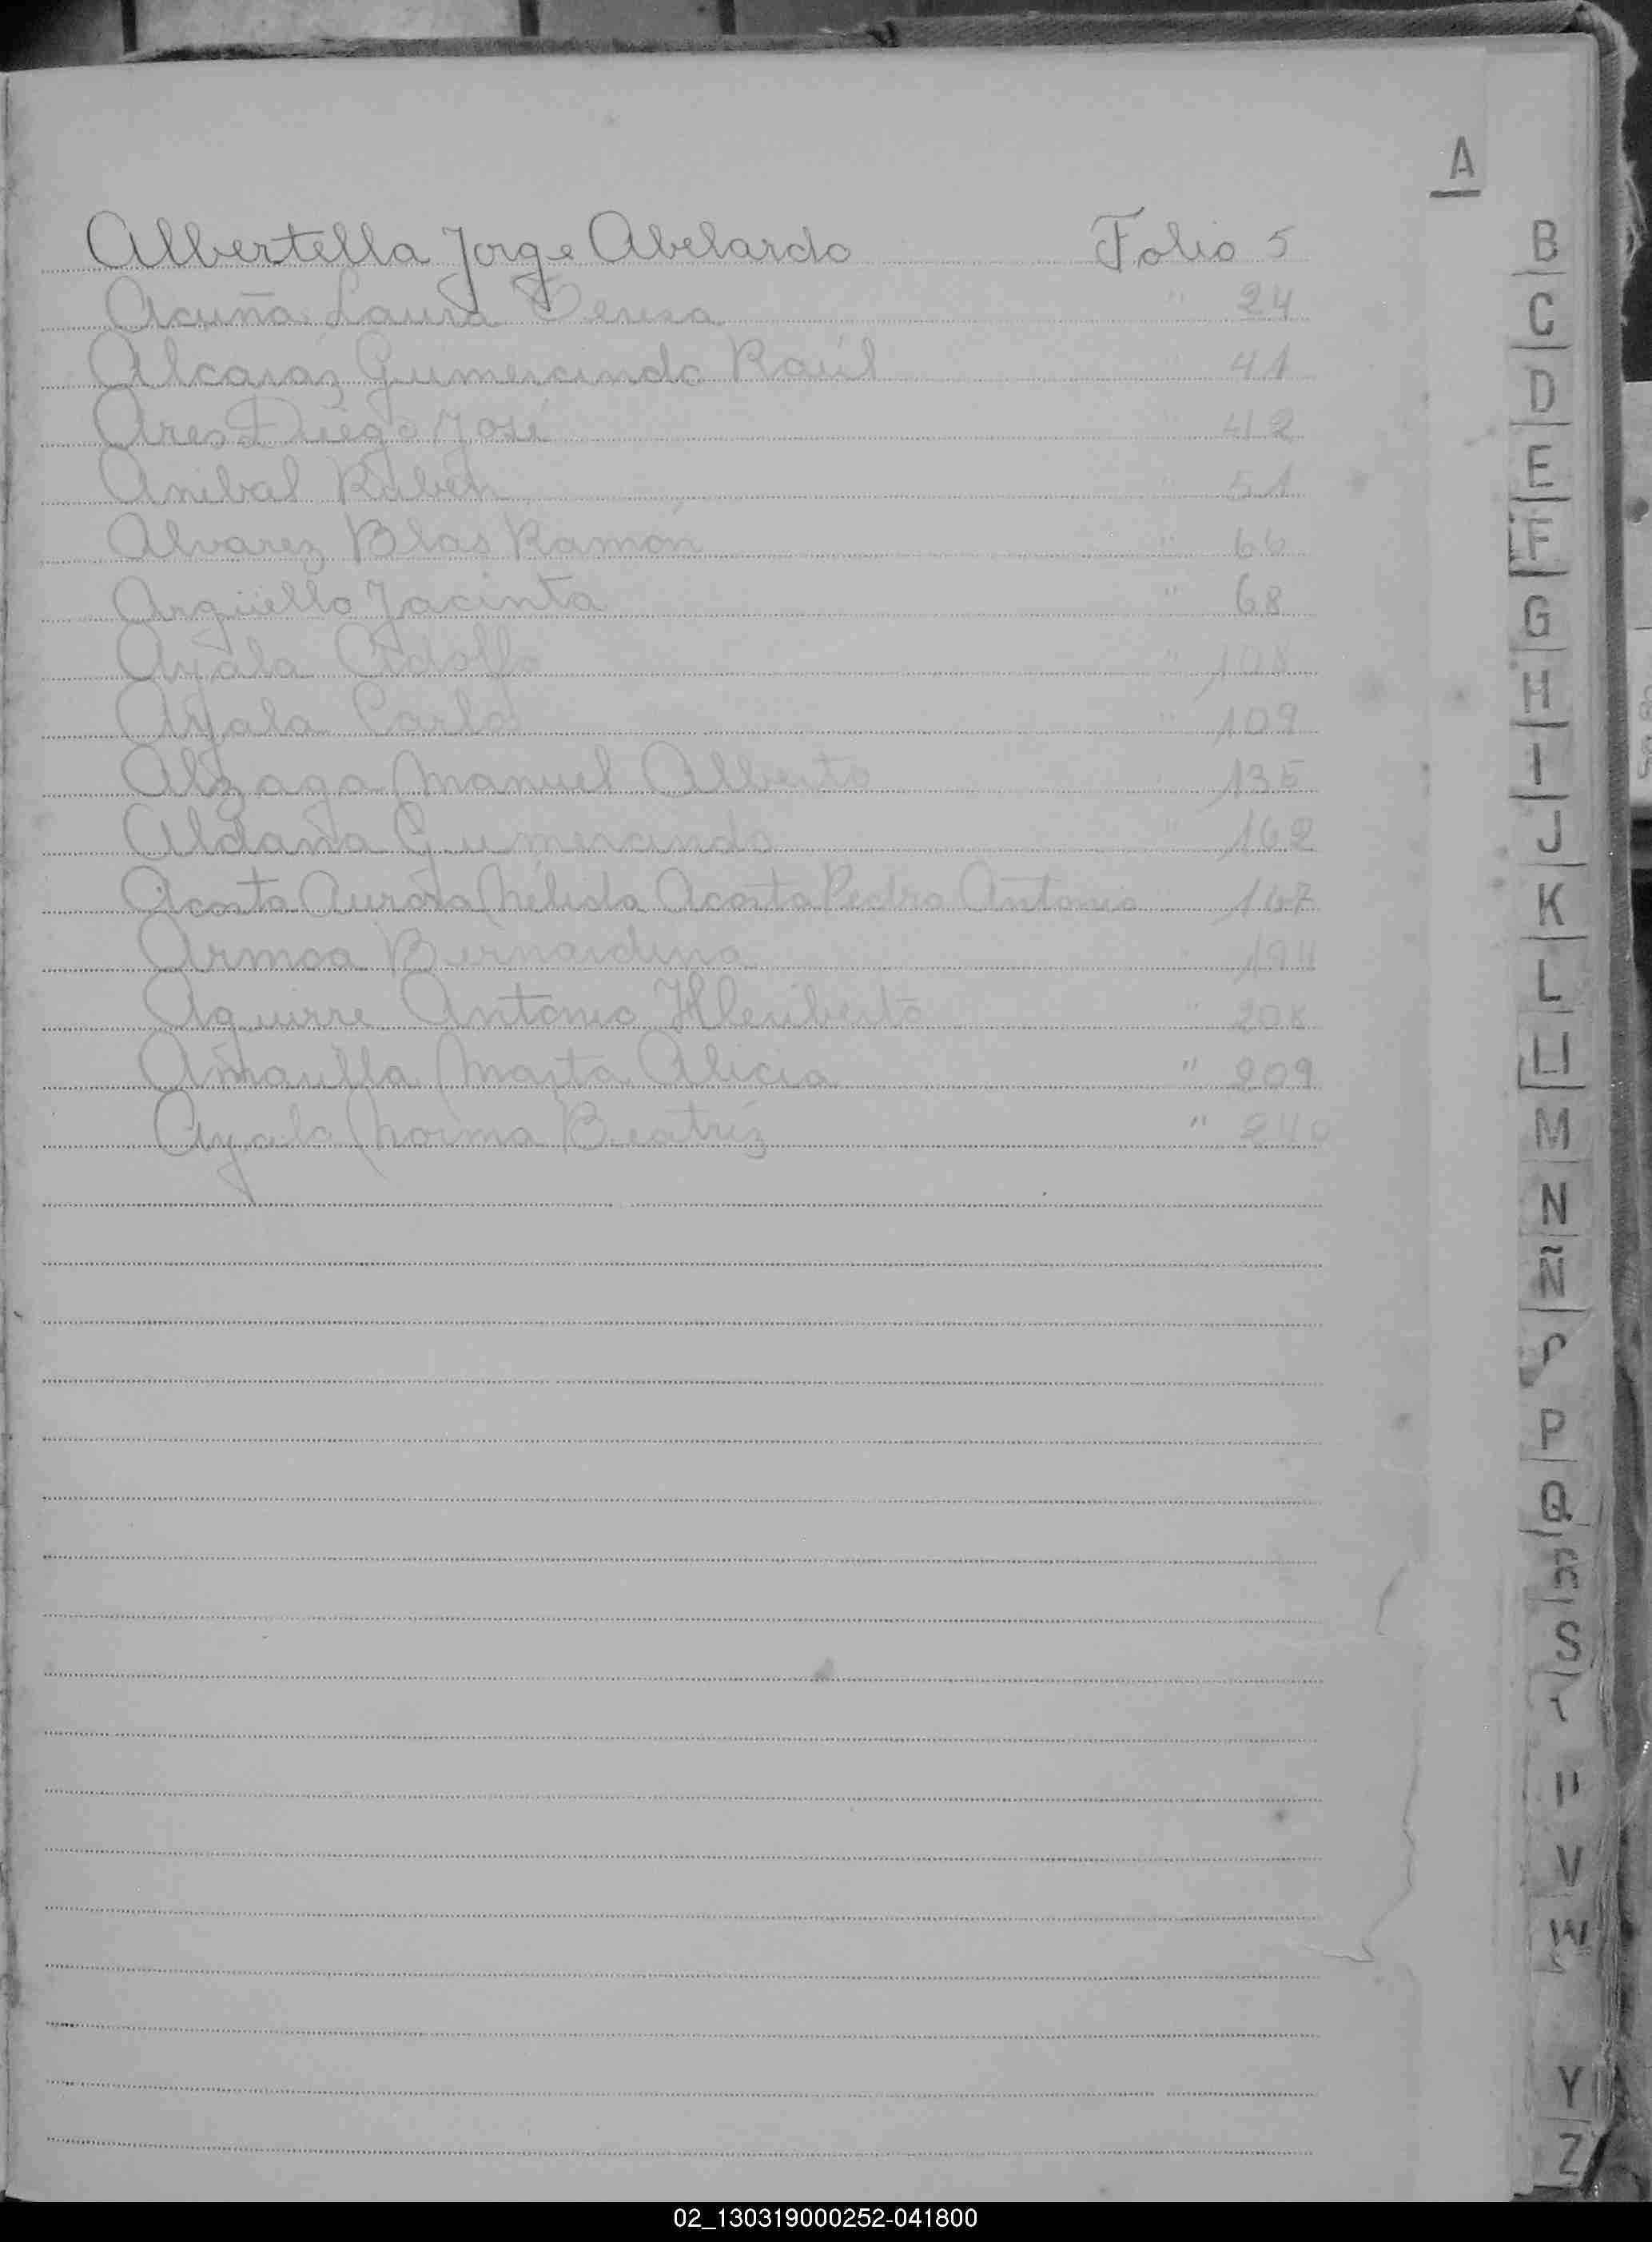 A
Albertella Jorge Abelardo Folio 5
Acuña Laura Teresa " 24
Alcaraz Gumersindo Raúl " 41
Ares Diego José " 42
Anibal Rubén " 51
Alvarez Blas Ramón " 66
Argüello Jacinta " 68
Ayala Adolfo " 108
Ayala Carlos " 109
Alzaga Manuel Alberto " 135
Aldana Gumersindo " 162
Acosta Aurora Nélida Acosta Pedro Antonio 167
Armoa Bernardina "
Aguirre Antonio Heriberto " 208
Marta Alicia " 209
Ayala Norma Beatríz " 240
B
C
D
E
F
G
H
I
J
K
L
LL
M
N
Ñ
P
Q
R
S
V
W
Y
Z
02_130319000252-041800